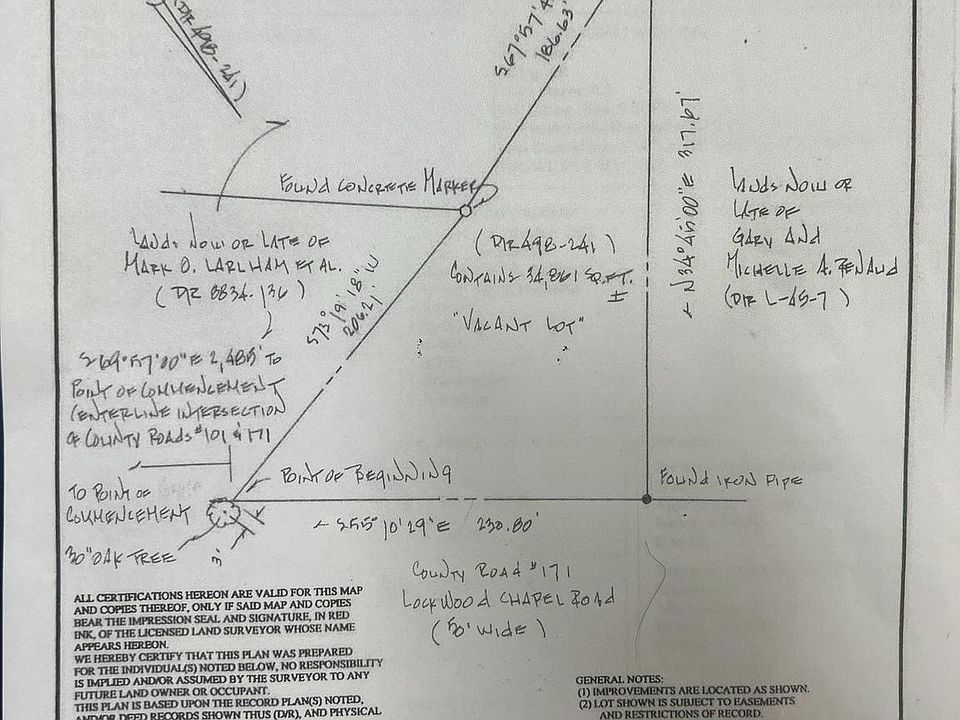 (DIR 498-241)
S67°57'4
186.63'
N34°45'00"E 317.67'
FOUND CONCRETE MARKER
LANDS NOW OR LATE OF
MARK O. LARLHAM ET AL.
(DIR 8834-136)
S73°19'18"W
206.21'
(DIR 498-241)
CONTAINS 34,861 SQ.FT.
±
"VACANT LOT"
LANDS NOW OR
LATE OF
GARY AND
MICHELLE A. RENAUD
(DIR L-45-7)
S69°57'00"E 2,485' TO
POINT OF COMMENCEMENT
CENTERLINE INTERSECTION
OF COUNTY ROADS #101 & 171
POINT OF BEGINNING
FOUND IRON PIPE
TO POINT OF
COMMENCEMENT
30" OAK TREE
3'
S55°10'29"E 230.80'
COUNTY ROAD #171
LOCKWOOD CHAPEL ROAD
(50' WIDE)
ALL CERTIFICATIONS HEREON ARE VALID FOR THIS MAP
AND COPIES THEREOF, ONLY IF SAID MAP AND COPIES
BEAR THE IMPRESSION SEAL AND SIGNATURE, IN RED
INK, OF THE LICENSED LAND SURVEYOR WHOSE NAME
APPEARS HEREON.
WE HEREBY CERTIFY THAT THIS PLAN WAS PREPARED
FOR THE INDIVIDUAL(S) NOTED BELOW, NO RESPONSIBILITY
IS IMPLIED AND/OR ASSUMED BY THE SURVEYOR TO ANY
FUTURE LAND OWNER OR OCCUPANT.
THIS PLAN IS BASED UPON THE RECORD PLAN(S) NOTED,
AND/OR DEED RECORDS SHOWN THUS (D/R), AND PHYSICAL
GENERAL NOTES:
(1) IMPROVEMENTS ARE LOCATED AS SHOWN.
(2) LOT SHOWN IS SUBJECT TO EASEMENTS
AND RESTRICTIONS OF RECORD.